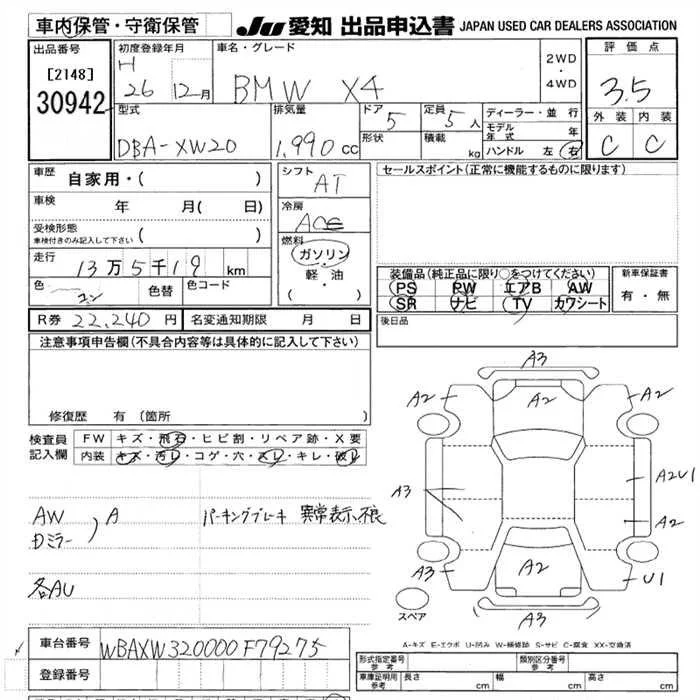 車内保管・守衛保管
JU 愛知 出品申込書 JAPAN USED CAR DEALERS ASSOCIATION
出品番号
[2148]
30942
初度登録年月
H
26 12月
車名・グレード
BMW X4
2WD
・
4WD
評価点
3.5
外装 内装
C C
型式
DBA-XW20
排気量
1,990 cc
ドア 5
形状
定員 5 人
積載 kg
ディーラー・並行
モデル年式 年
ハンドル 左 右
車歴 自家用・( )
車検 年 月( 日)
受検形態
車検付きのみ記入して下さい ( )
走行
13万5千19 km
色 コン 色替 色コード
R券 22,240 円 名変通知期限 月 日
シフト
AT
冷房
燃料
ガソリン
・
軽・油
( ・ )
セールスポイント(正常に機能するものに限ります)
装備品(純正品に限り○をつけてください)
PS PW エアB AW
SR ナビ TV カワシート
新車保証書
有・無
後日品
注意事項申告欄(不具合内容等は具体的に記入して下さい)
修復歴 有(箇所
検査員
記入欄
FW キズ・飛石・ヒビ割・リペア跡・X要
内装 キズ・汚レ・コゲ・穴・スレ・キレ・破レ
AW
Dミラー
) A
パーキングブレーキ 異常表示、不良
各AU
A3
A2 A2 A2
A3 A2U1
A2
A3 A2 U1
A3
スペア
A-キズ E-エクボ U-凹み W-補修跡 S-サビ C-腐食 XX-交換済
車台番号 WBAXW320000F79275
登録番号
形式指定番号
参考
類別区分番号
参考
車庫証明用
参考
長さ cm 幅 cm 高さ cm